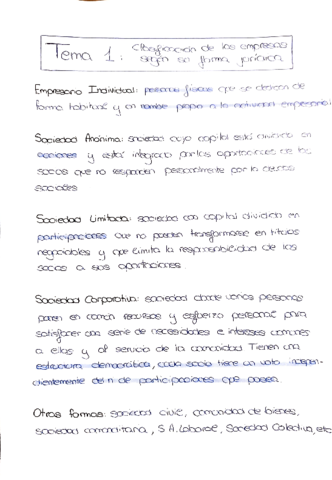 Tema 1: Clasificación de las empresas
según su forma jurídica
Empresario Individual: personas físicas que se dedican de
forma habitual y en nombre propio a la actividad empresarial
Sociedad Anónima: sociedad cuyo capital está dividido en
acciones y está integrado por las aportaciones de los
socios que no responden personalmente por la deudas
sociales
Sociedad Limitada: sociedad con capital dividido en
participaciones que no pueden transformarse en títulos
negociables y que limita la responsabilidad de los
socios a sus aportaciones.
Sociedad Corporativa: sociedad donde varias personas
ponen en común recursos y esfuerzo personal para
satisfacer una serie de necesidades e intereses comunes
a ellas y al servicio de la comunidad. Tienen una
estructura democrática, cada socio tiene un voto indepen-
dientemente del n de participaciones que posea.
Otras formas: sociedad civil, comunidad de bienes,
sociedad comanditaria, S.A. Laboral, Sociedad Colectiva, etc